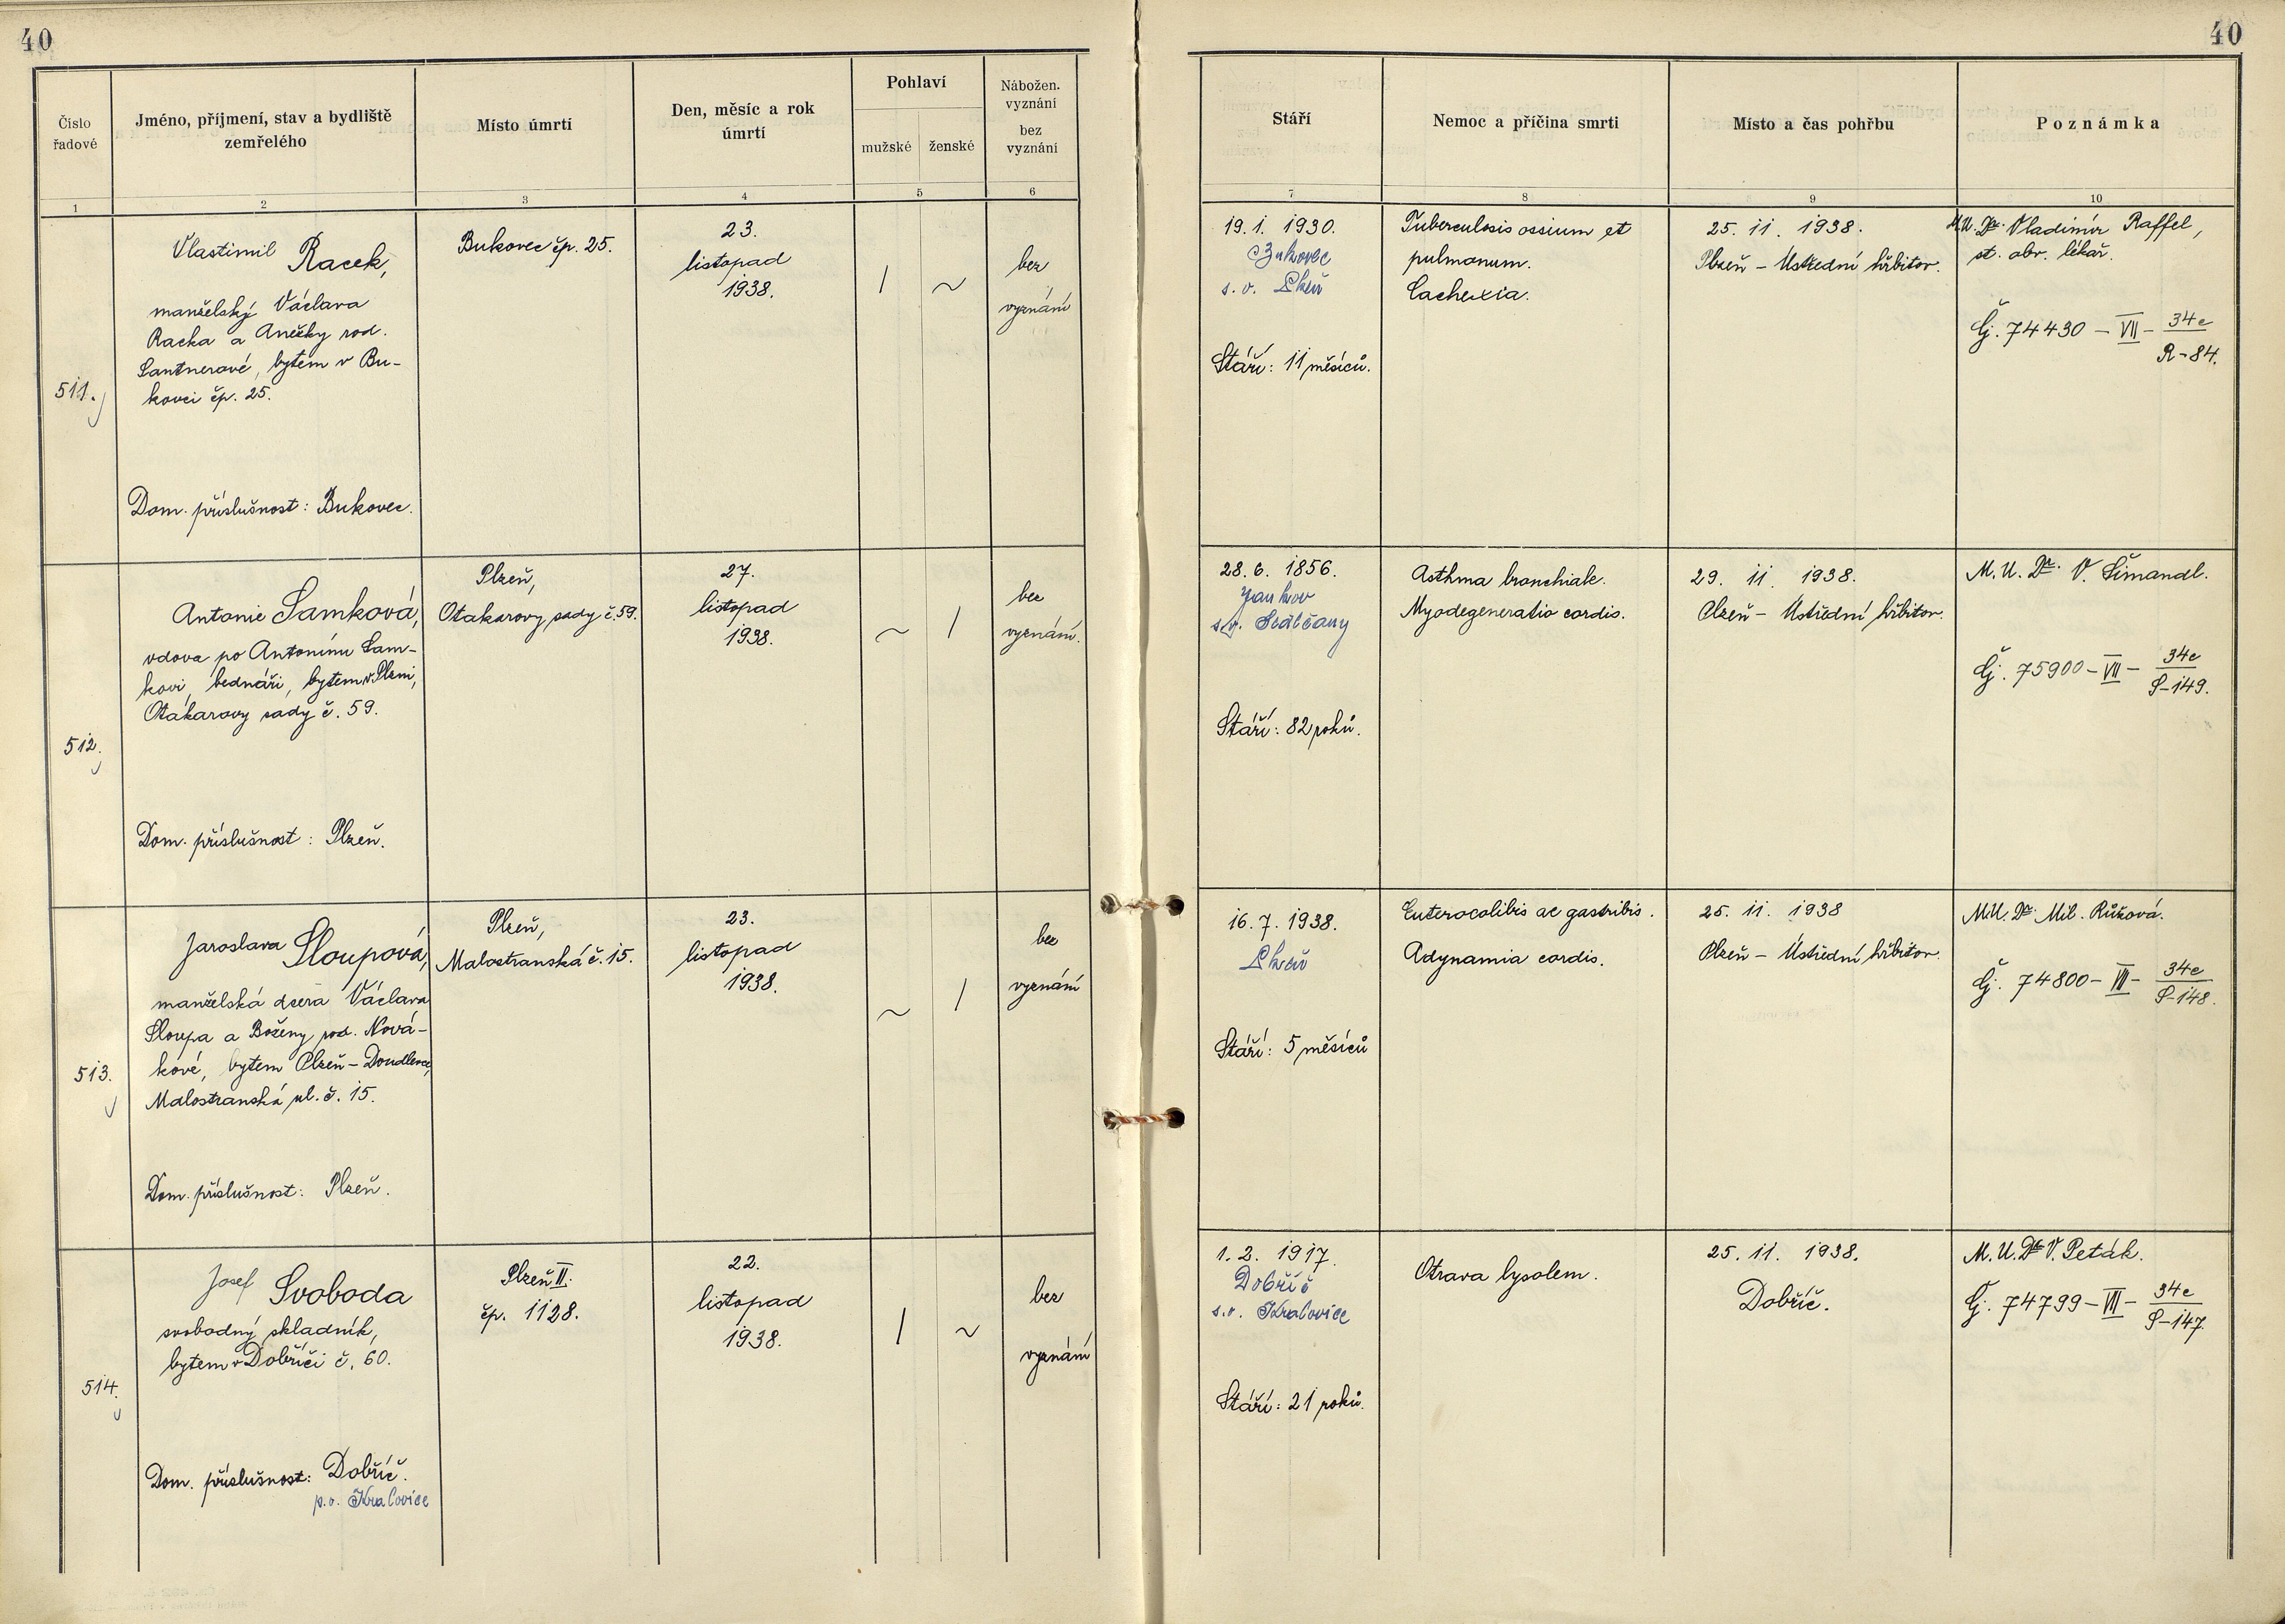 40
40
Číslo
řadové
Jméno, příjmení, stav a bydliště
zemřelého
Místo úmrtí
Den, měsíc a rok
úmrtí
Pohlaví
mužské
ženské
Nábožen.
vyznání
bez
vyznání
Stáří
Nemoc a příčina smrti
Místo a čas pohřbu
Poznámka
1
2
3
4
5
6
7
8
9
10
511.
Vlastimil Racek,
manželský Václava
Racka a Anežky rod.
Santnerové, bytem v Bu-
kovci čp. 25.
Dom. příslušnost: Bukovec.
Bukovec čp. 25.
23.
listopad
1938.
/
~
bez
vyznání
19. 1. 1930.
Bukovec
s. o. Plzeň
Stáří: 11 měsíců.
Tuberculosis ossium et
pulmonum.
Cachexia.
25. 11. 1938.
Plzeň – Ústřední hřbitov.
M.U.Dr. Vladimír Raffel,
st. obv. lékař.
Čj. 74430 – VII – 34e
R-84.
512.
Antonie Samková,
vdova po Antonínu Sam-
kovi, bednáři, bytem v Plzni,
Otakarovy sady č. 59.
Dom. příslušnost: Plzeň.
Plzeň,
Otakarovy sady č. 59.
27.
listopad
1938.
~
/
bez
vyznání.
28. 6. 1856.
Jankov
s. o. Sedlčany
Stáří: 82 roků.
Asthma bronchiale.
Myodegeneratio cordis.
29. 11. 1938.
Plzeň – Ústřední hřbitov.
M.U.Dr. V. Šimandl.
Čj. 75900 – VII – 34e
S-149.
513.
Jaroslava Sloupová,
manželská dcera Václava
Sloupa a Boženy rod. Nová-
kové, bytem Plzeň – Doudlevce,
Malostranská ul. č. 15.
Dom. příslušnost: Plzeň.
Plzeň,
Malostranská č. 15.
23.
listopad
1938.
~
/
bez
vyznání
16. 7. 1938.
Plzeň
Stáří: 5 měsíců
Enterocolitis ac gastritis.
Adynamia cordis.
25. 11. 1938
Plzeň – Ústřední hřbitov.
M.U.Dr. Mil. Růžová.
Čj. 74800 – VII – 34e
S-148.
514.
Josef Svoboda
svobodný skladník,
bytem v Dobříči č. 60.
Dom. příslušnost: Dobříč.
p. o. Kralovice
Plzeň II.
čp. 1128.
22.
listopad
1938.
/
~
bez
vyznání
1. 2. 1917.
Dobříč
s. o. Kralovice
Stáří: 21 roků.
Otrava lysolem.
25. 11. 1938.
Dobříč.
M.U.Dr. V. Peták.
Čj. 74799 – VII – 34e
S-147.